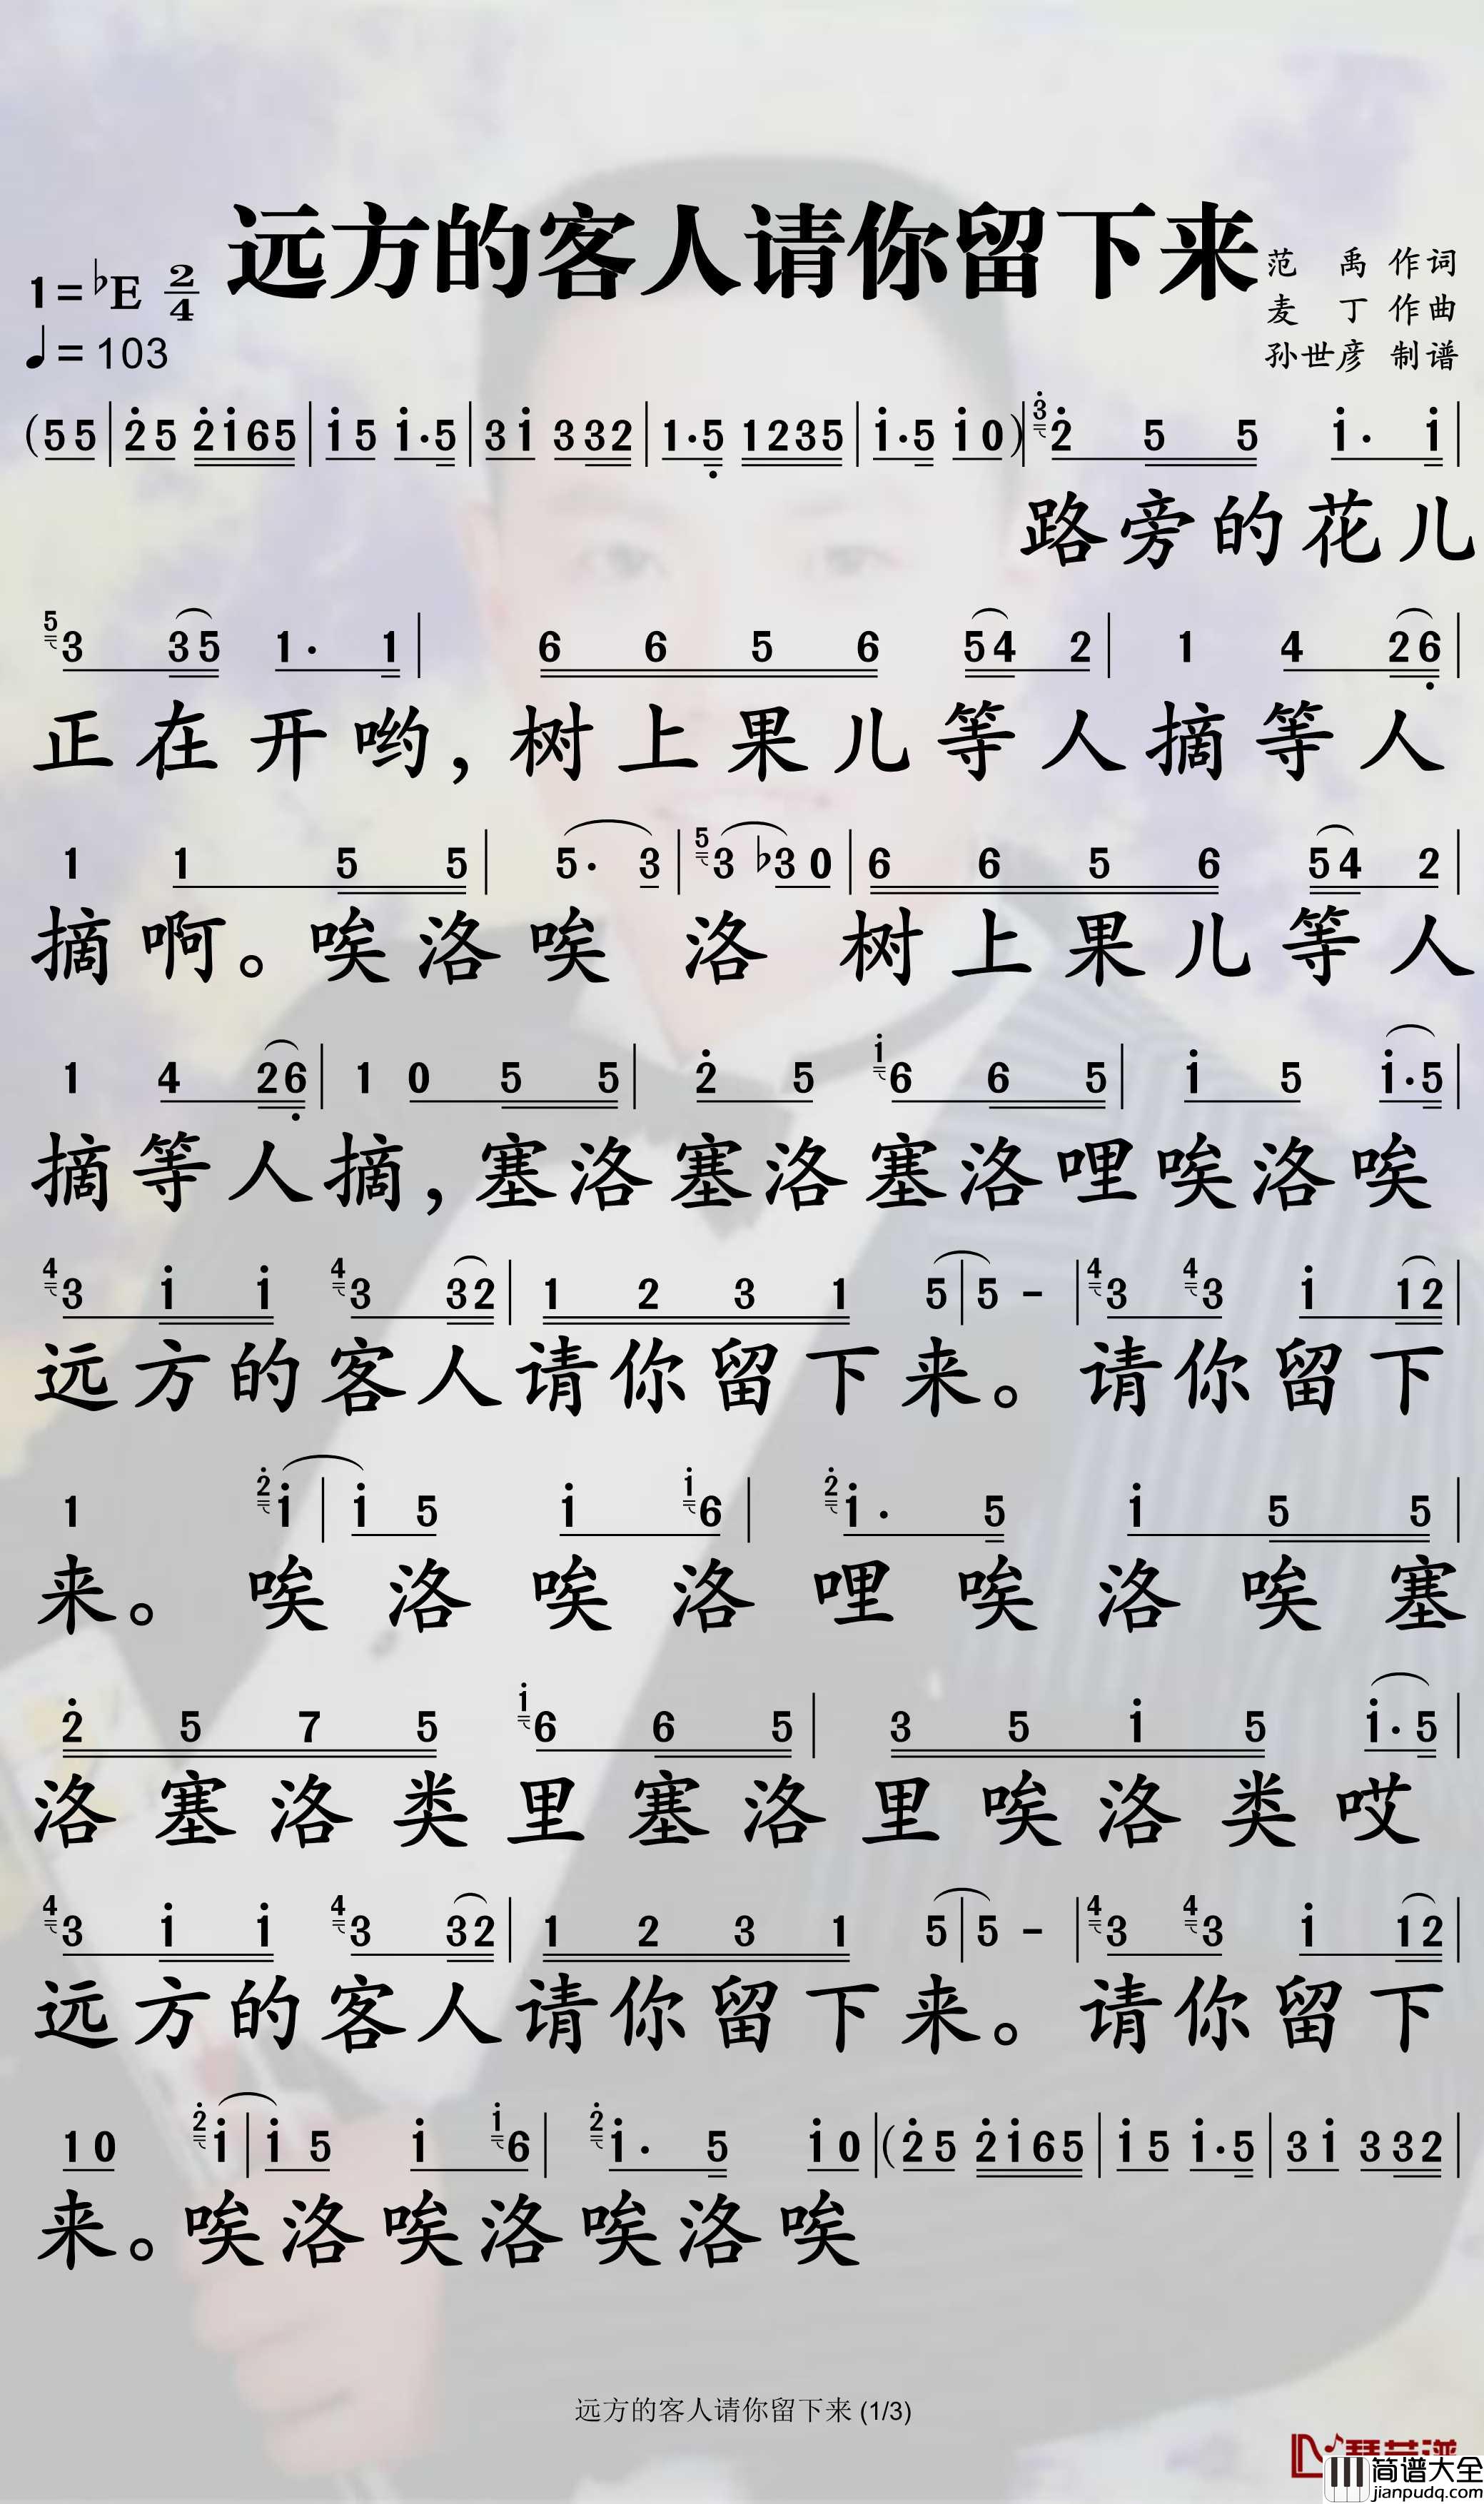 远方的客人请你留下来
1=♭E 2/4
♩=103
范 禹 作词
麦 丁 作曲
孙世彦 制谱
(5 5 | 2̇ 5 2̇ 1̇ 6 5 | 1̇ 5 1̇·5 | 3 1̇ 3 3 2 | 1·5̣ 1 2 3 5 | 1̇·5 1̇ 0) | 3̇ 2̇ 5 5 1̇· 1̇ |
路旁的花儿
5 3 3 5 1· 1 | 6 6 5 6 5 4 2 | 1 4 2 6̣ |
正在开哟,树上果儿等人摘等人
1 1 5 5 | 5· 3 | 5 3 ♭3 0 | 6 6 5 6 5 4 2 |
摘啊。唉洛唉洛树上果儿等人
1 4 2 6̣ | 1 0 5 5 | 2̇ 5 1̇ 6 6 5 | 1̇ 5 1̇·5 |
摘等人摘,塞洛塞洛塞洛哩唉洛唉
4 3 1̇ 1̇ 4 3 3 2 | 1 2 3 1 5 | 5 - | 4 3 4 3 1̇ 1 2 |
远方的客人请你留下来。请你留下
1 2̇ 1̇ | 1̇ 5 1̇ 1̇ 6 | 2̇ 1̇· 5 1̇ 5 5 |
来。唉洛唉洛哩唉洛唉塞
2̇ 5 7 5 1̇ 6 6 5 | 3 5 1̇ 5 1̇·5 |
洛塞洛类里塞洛里唉洛类哎
4 3 1̇ 1̇ 4 3 3 2 | 1 2 3 1 5 | 5 - | 4 3 4 3 1̇ 1 2 |
远方的客人请你留下来。请你留下
1 0 2̇ 1̇ | 1̇ 5 1̇ 1̇ 6 | 2̇ 1̇· 5 1̇ 0 | (2̇ 5 2̇ 1̇ 6 5 | 1̇ 5 1̇·5 | 3 1̇ 3 3 2 |
来。唉洛唉洛唉洛唉
远方的客人请你留下来 (1/3)
简谱大全
jianpudq.com